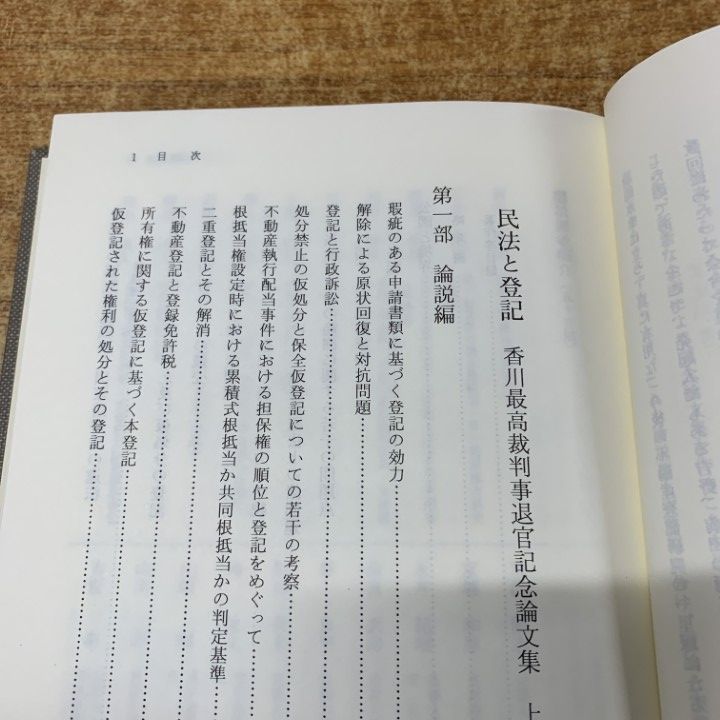 民法と登記 香川最高裁判事退官記念論文集 上
第一部 論説編
瑕疵のある申請書類に基づく登記の効力
解除による原状回復と対抗問題
登記と行政訴訟
処分禁止の仮処分と保全仮登記についての若干の考察
不動産執行配当事件における担保権の順位と登記をめぐって
根抵当権設定時における累積式根抵当か共同根抵当かの判定基準
二重登記とその解消
不動産登記と登録免許税
所有権に関する仮登記に基づく本登記
仮登記された権利の処分とその登記
1 目次